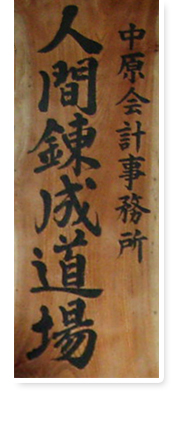 中原会計事務所
人間錬成道場